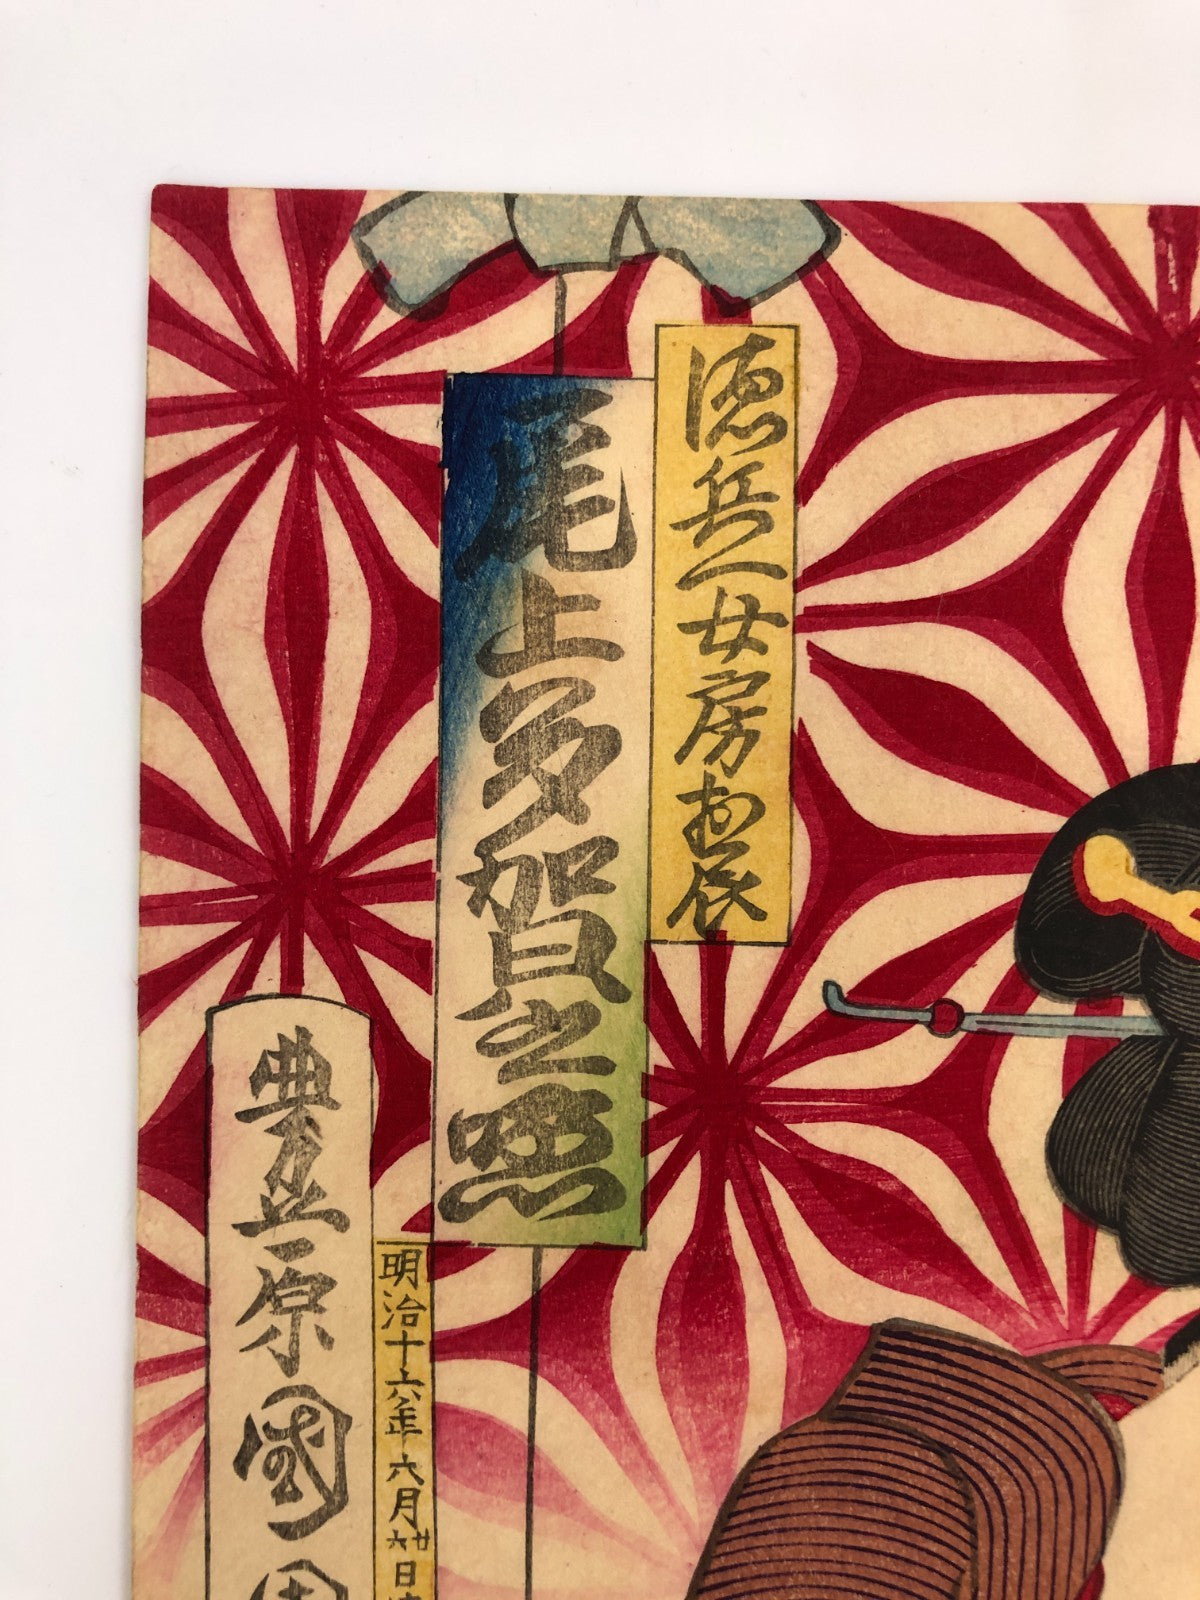 徳兵衛女房お辰
尾上多賀之丞
豊原國周
明治十六年六月廿六日